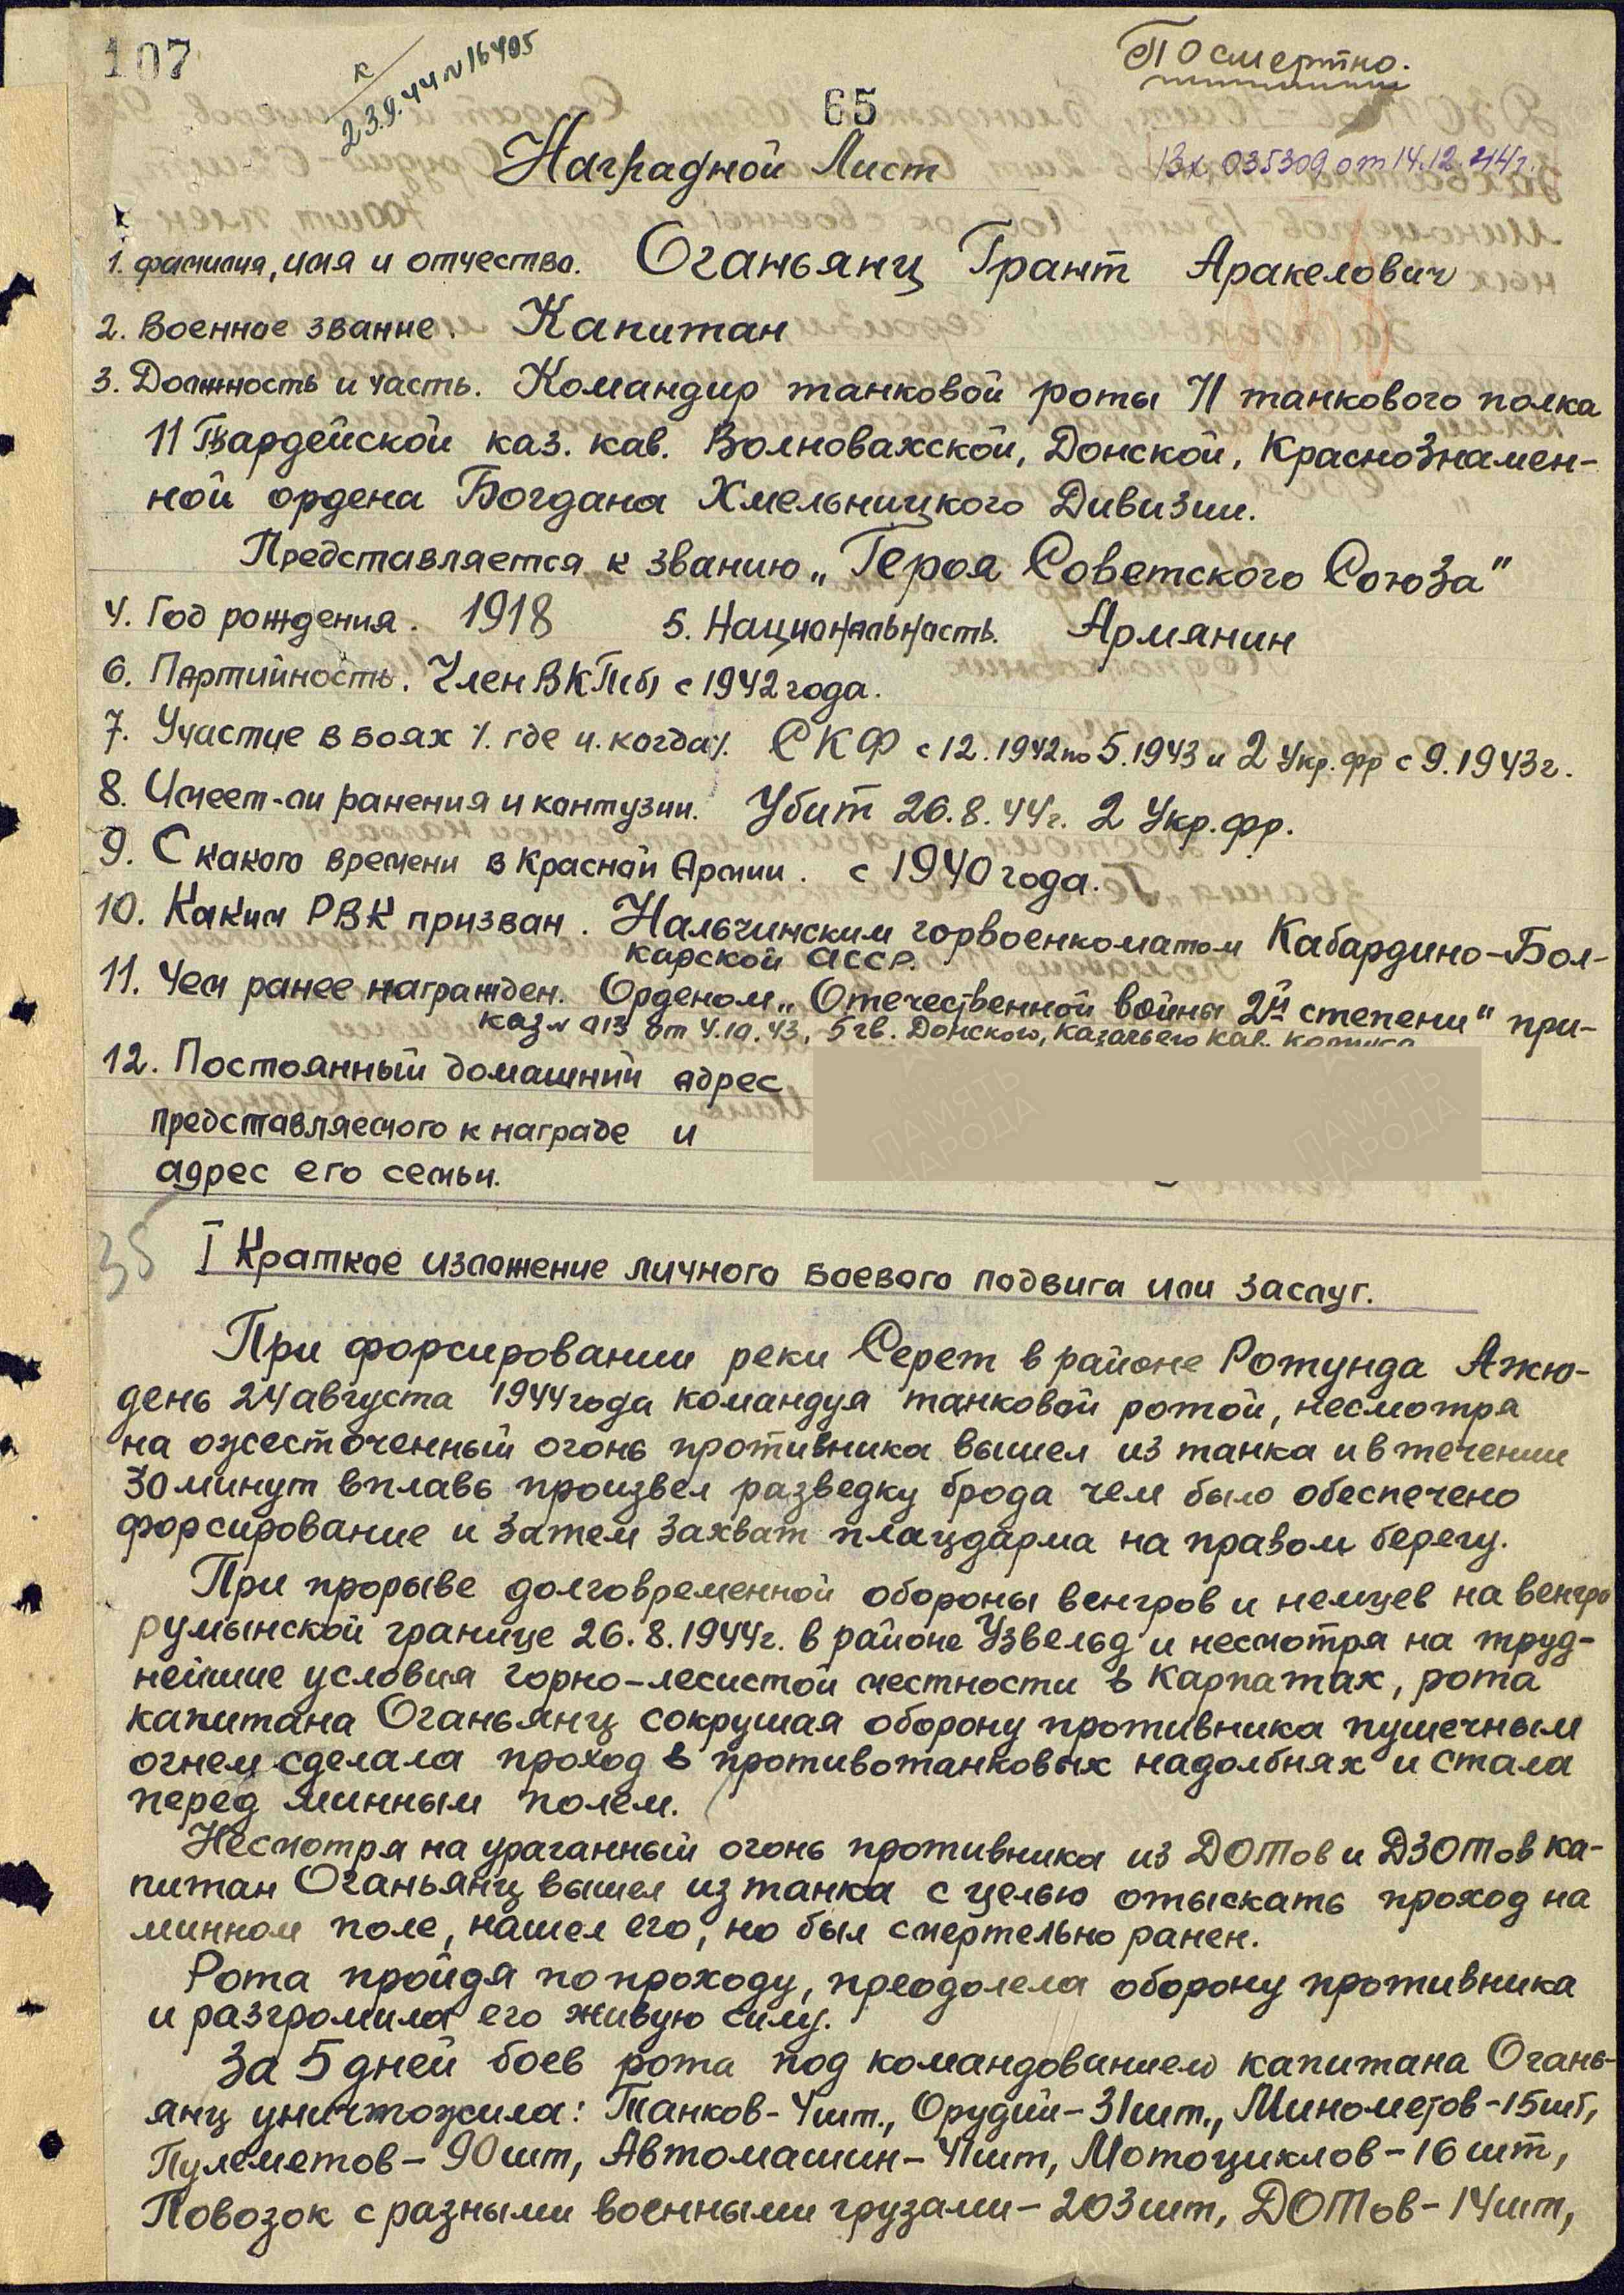 107
к
23.9.44 N 16405
Посмертно.
65
Вх. 035309 от 14.12.44г.
Наградной Лист
1. фамилия, имя и отчество. Оганьянц Грант Аракелович
2. Военное звание. Капитан
3. Должность и часть. Командир танковой роты 71 танкового полка
11 Гвардейской каз. кав. Волновахской, Донской, Краснознамен-
ной ордена Богдана Хмельницкого Дивизии.
Представляется к званию „Героя Советского Союза"
4. Год рождения. 1918 5. Национальность. Армянин
6. Партийность. Член ВКП(б) с 1942 года.
7. Участие в боях /. где и когда/. СКФ с 12.1942 по 5.1943 и 2 Укр. фр с 9.1943г.
8. Имеет-ли ранения и контузии. Убит 26.8.44г. 2 Укр. фр.
9. С какого времени в Красной Армии. с 1940 года.
10. Каким РВК призван. Нальчинским горвоенкоматом Кабардино-Бол-
карской АССР.
11. Чем ранее награжден. Орденом „Отечественной войны 2й степени" при-
каз N от 4.10.43, 5 гв. Донского, Казачьего кав. корпуса
12. Постоянный домашний адрес
представляемого к награде и
адрес его семьи.
35
I Краткое изложение личного боевого подвига или заслуг.
При форсировании реки Серет в районе Ротунда Ажю-
день 24 августа 1944 года командуя танковой ротой, несмотря
на ожесточенный огонь противника вышел из танка и в течении
30 минут вплавь произвел разведку брода чем было обеспечено
форсирование и затем захват плацдарма на правом берегу.
При прорыве долговременной обороны венгров и немцев на венгро
румынской границе 26.8.1944г. в районе Узвельд и несмотря на труд-
нейшие условия горно-лесистой местности в Карпатах, рота
капитана Оганьянц сокрушая оборону противника пушечным
огнем сделала проход в противотанковых надолбнях и стала
перед минным полем.
Несмотря на ураганный огонь противника из ДОТов и ДЗОТов ка-
питан Оганьянц вышел из танка с целью отыскать проход на
минном поле, нашел его, но был смертельно ранен.
Рота пройдя по проходу, преодолела оборону противника
и разгромила его живую силу.
За 5 дней боев рота под командованием капитана Огань-
янц уничтожила: Танков- 4шт., Орудий- 31шт., Минометов-15шт,
Пулеметов- 90шт, Автомашин- 41шт, Мотоциклов- 16 шт,
Повозок с разными военными грузами- 203шт, ДОТов- 14шт,
ПАМЯТЬ НАРОДА
ПАМЯТЬ НАРОДА